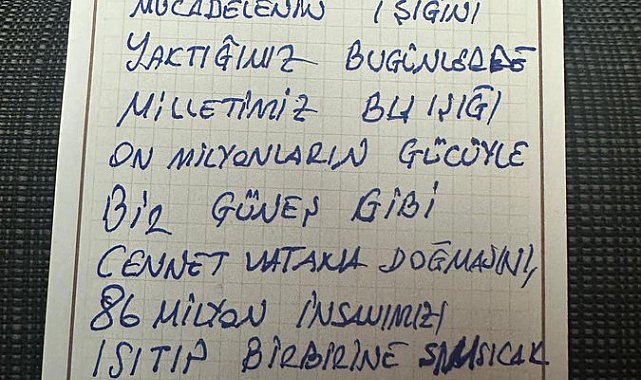 MÜCADELENİN IŞIĞINI
YAKTIĞIMIZ BUGÜNLERDE
MİLLETİMİZ BU IŞIĞI
ON MİLYONLARIN GÜCÜYLE
BİR GÜNEŞ GİBİ
CENNET VATANA DOĞMASINI,
86 MİLYON İNSANIMIZI
ISITIP BİRBİRİNE SIMSICAK